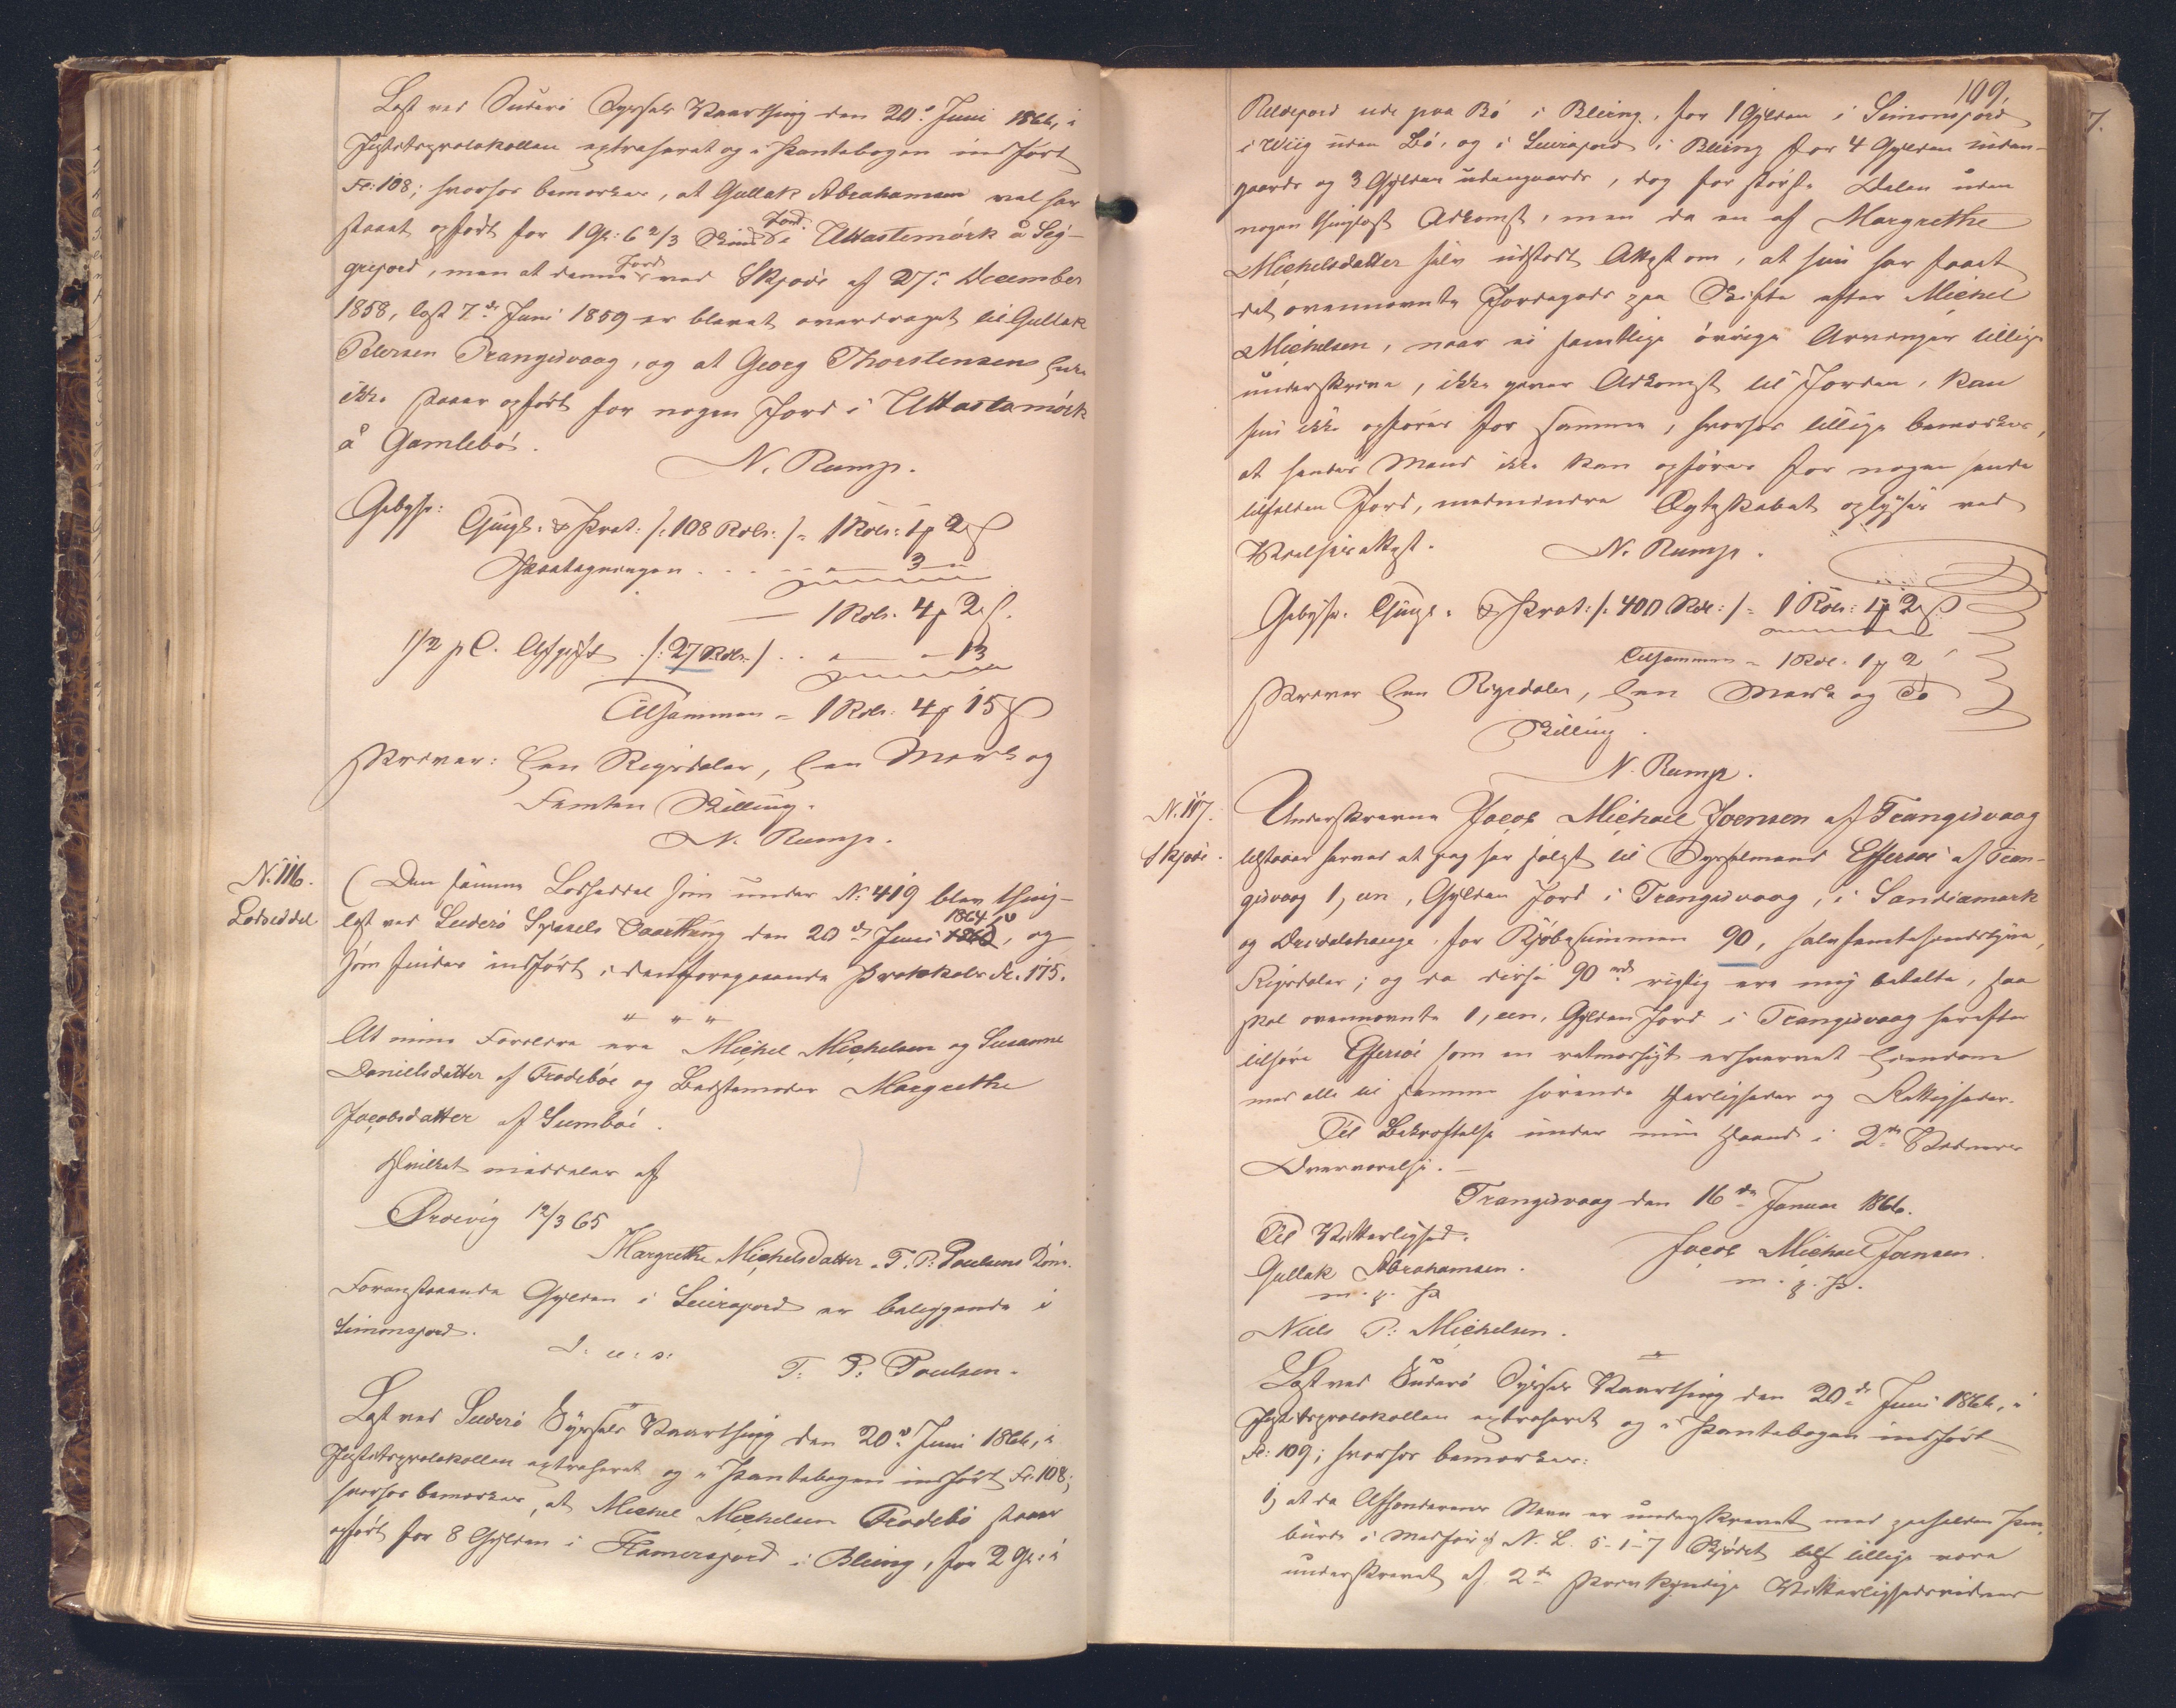 Læst ved Suderø Syssels Vaarthing den 20de Juni 1866, i
Justitsprotokollen extraheret og i Pantebogen indført
Fo: 108; hvorhos bemærkes, at Gullak Abrahamsen vel har
staaet opført for 1 Gl: 6 2/3 Skind Jord i Uttastemörk å Læg-
grejord, men at denne Jord ved Skjøde af 27de December
1858, læst 7de Juni 1859 er blevet overdraget til Gullak
Petersen Trangisvaag, og at Georg Thorstensens Enke
ikke staaer opført for nogen Jord i Uttastamörk
å Gamlebö.
N. Rump.
Gebyhr:
Thingl. & Prot: /: 108 Rdlr. :/ = 1 Rdlr: 1 # 2 ß
Paategningen . . . . — 3 —
— 1 Rdlr. 4 # 2 ß.
1/2 p C. Afgift . /: 27 Rdlr. :/ . . — — 13
Tilsammen = 1 Rdlr. 4 # 15 ß
skriver: Een Rigsdaler, Mark og
Femten Skilling.
N. Rump.
N. 116.
Lodseddel
(Den samme Lodseddel som under N: 419 blev thing-
læst ved Suderø Syssels Vaarthing den 20de Juni 1864, og
som findes indført i den foregaaende Protokols Fo. 175.
" " "
At mine Forældre ere Michel Michelsen og Susanne
Danielsdatter af Frodebøe og Bedstemoder Margrethe
Jacobsdatter af Sumbøe.
Hvilket meddeles af
Ørdevig 12/3 65
Margrethe Michelsdatter. T. P. Poulsens Kone.
Foranstaaende Gylden i Leirajord er beliggende i
Simonsjord.
D: u: s:
T: P: Poulsen.
Læst ved Suderø Syssels Vaarthing den 20de Juni 1866, i
Justitsprotokollen extraheret og i Pantebogen indført Fo: 108;
hvorhos bemærkes, at Michel Michelsen Frodebø staaer
opført for 8 Gylden i Hamersjord i Bleing, for 2 Gl: i
109.
Reldejord ude paa Bø i Bleing, for 1 Gylden i Simonsjord
i Wiig uden Bø, og i Leirajord i Bleing for 4 Gylden inden-
gaards og 3 Gylden udengaards, dog for største Delen uden
nogen thinglæst Adkomst, men da en af Margrethe
Michelsdatter selv udstedt Attest om, at hun har faaet
det ovennævnte Jordegods paa Skifte efter Michel
Michelsen, naar ei samtlige øvrige Arvinger tillige
underskrive, ikke giver Adkomst til Jorden, kan
hun ikke opføres for samme, hvorhos tillige bemærkes,
at hendes Mand ikke kan opføres for nogen hende
tilfalden Jord, medmindre Ægteskabet oplyses ved
Vielsesattest.
N. Rump.
Gebyhr. Thingl. & Prot: /: 400 Rdl: :/ = 1 Rdlr: 1 # 2 ß
Tilsammen = 1 Rdl. 1 # 2
skriver Een Rigsdaler, Een Mark og To
Skilling.
N. Rump.
N. 117.
Skjøde.
Underskrevne Jacob Michael Joensen af Trangisvaag
tilstaaer herved at jeg har solgt til Sysselmand Effersøe af Tran-
gisvaag 1, een, Gylden Jord i Trangisvaag, i Sandiamark
og for Kjøbesummen 90, halvfemtesindstyve,
Rigsdaler; og da disse 90 rd rigtig ere mig betalte, saa
skal ovennævnte 1, een, Gylden Jord i Trangisvaag herefter
tilhøre Effersøe som en retmæssigt erhvervet Eiendom
med alle til samme hørende Herligheder og Rettigheder.
Til Bekræftelse under min Haand i 2de Vidners
Overværelse. —
Trangisvaag den 16de Januar 1866.
Til Vitterlighed.
Jacob Michael Joensen.
Gullak Abrahamsen.
m. f. P.
m. f. P.
Niels P: Michelsen.
Læst ved Suderø Syssels Vaarthing den 20de Juni 1866, i
Justitsprotokollen extraheret og i Pantebogen indført
Fo: 109; hvorhos bemærkes:
1, at da Afhænderens Navn er underskrevet med paaholden Pen,
burde i Medhør af N. L. 5-1-7 Skjødet tillige være
underskrevet af 2de skrivkyndige Vitterlighedsvidner